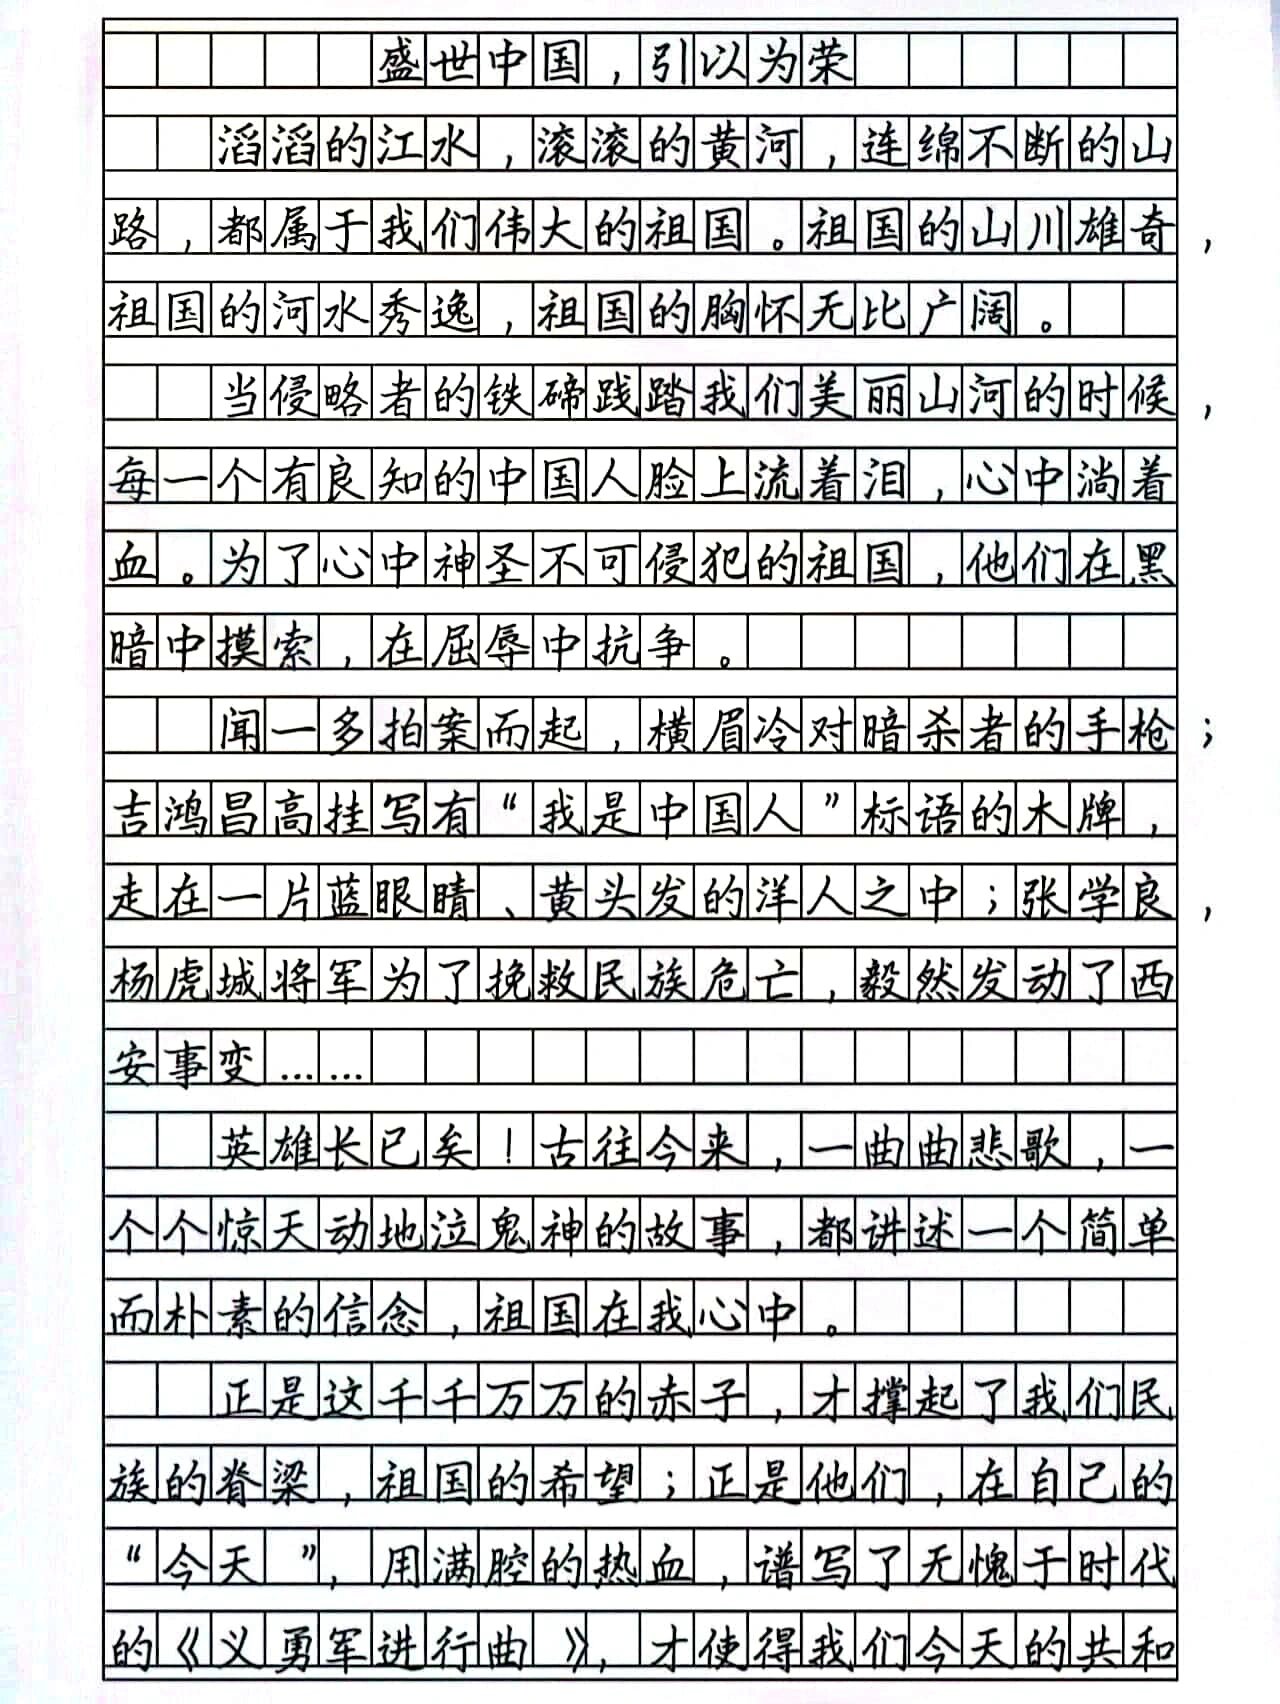 盛世中国，引以为荣
滔滔的江水，滚滚的黄河，连绵不断的山
路，都属于我们伟大的祖国。祖国的山川雄奇，
祖国的河水秀逸，祖国的胸怀无比广阔。
当侵略者的铁碲践踏我们美丽山河的时候，
每一个有良知的中国人脸上流着泪，心中淌着
血。为了心中神圣不可侵犯的祖国，他们在黑
暗中摸索，在屈辱中抗争。
闻一多拍案而起，横眉冷对暗杀者的手枪；
吉鸿昌高挂写有“我是中国人”标语的木牌，
走在一片蓝眼睛、黄头发的洋人之中；张学良，
杨虎城将军为了挽救民族危亡，毅然发动了西
安事变……
英雄长已矣！古往今来，一曲曲悲歌，一
个个惊天动地泣鬼神的故事，都讲述一个简单
而朴素的信念，祖国在我心中。
正是这千千万万的赤子，才撑起了我们民
族的脊梁，祖国的希望；正是他们，在自己的
“今天”，用满腔的热血，谱写了无愧于时代
的《义勇军进行曲》，才使得我们今天的共和